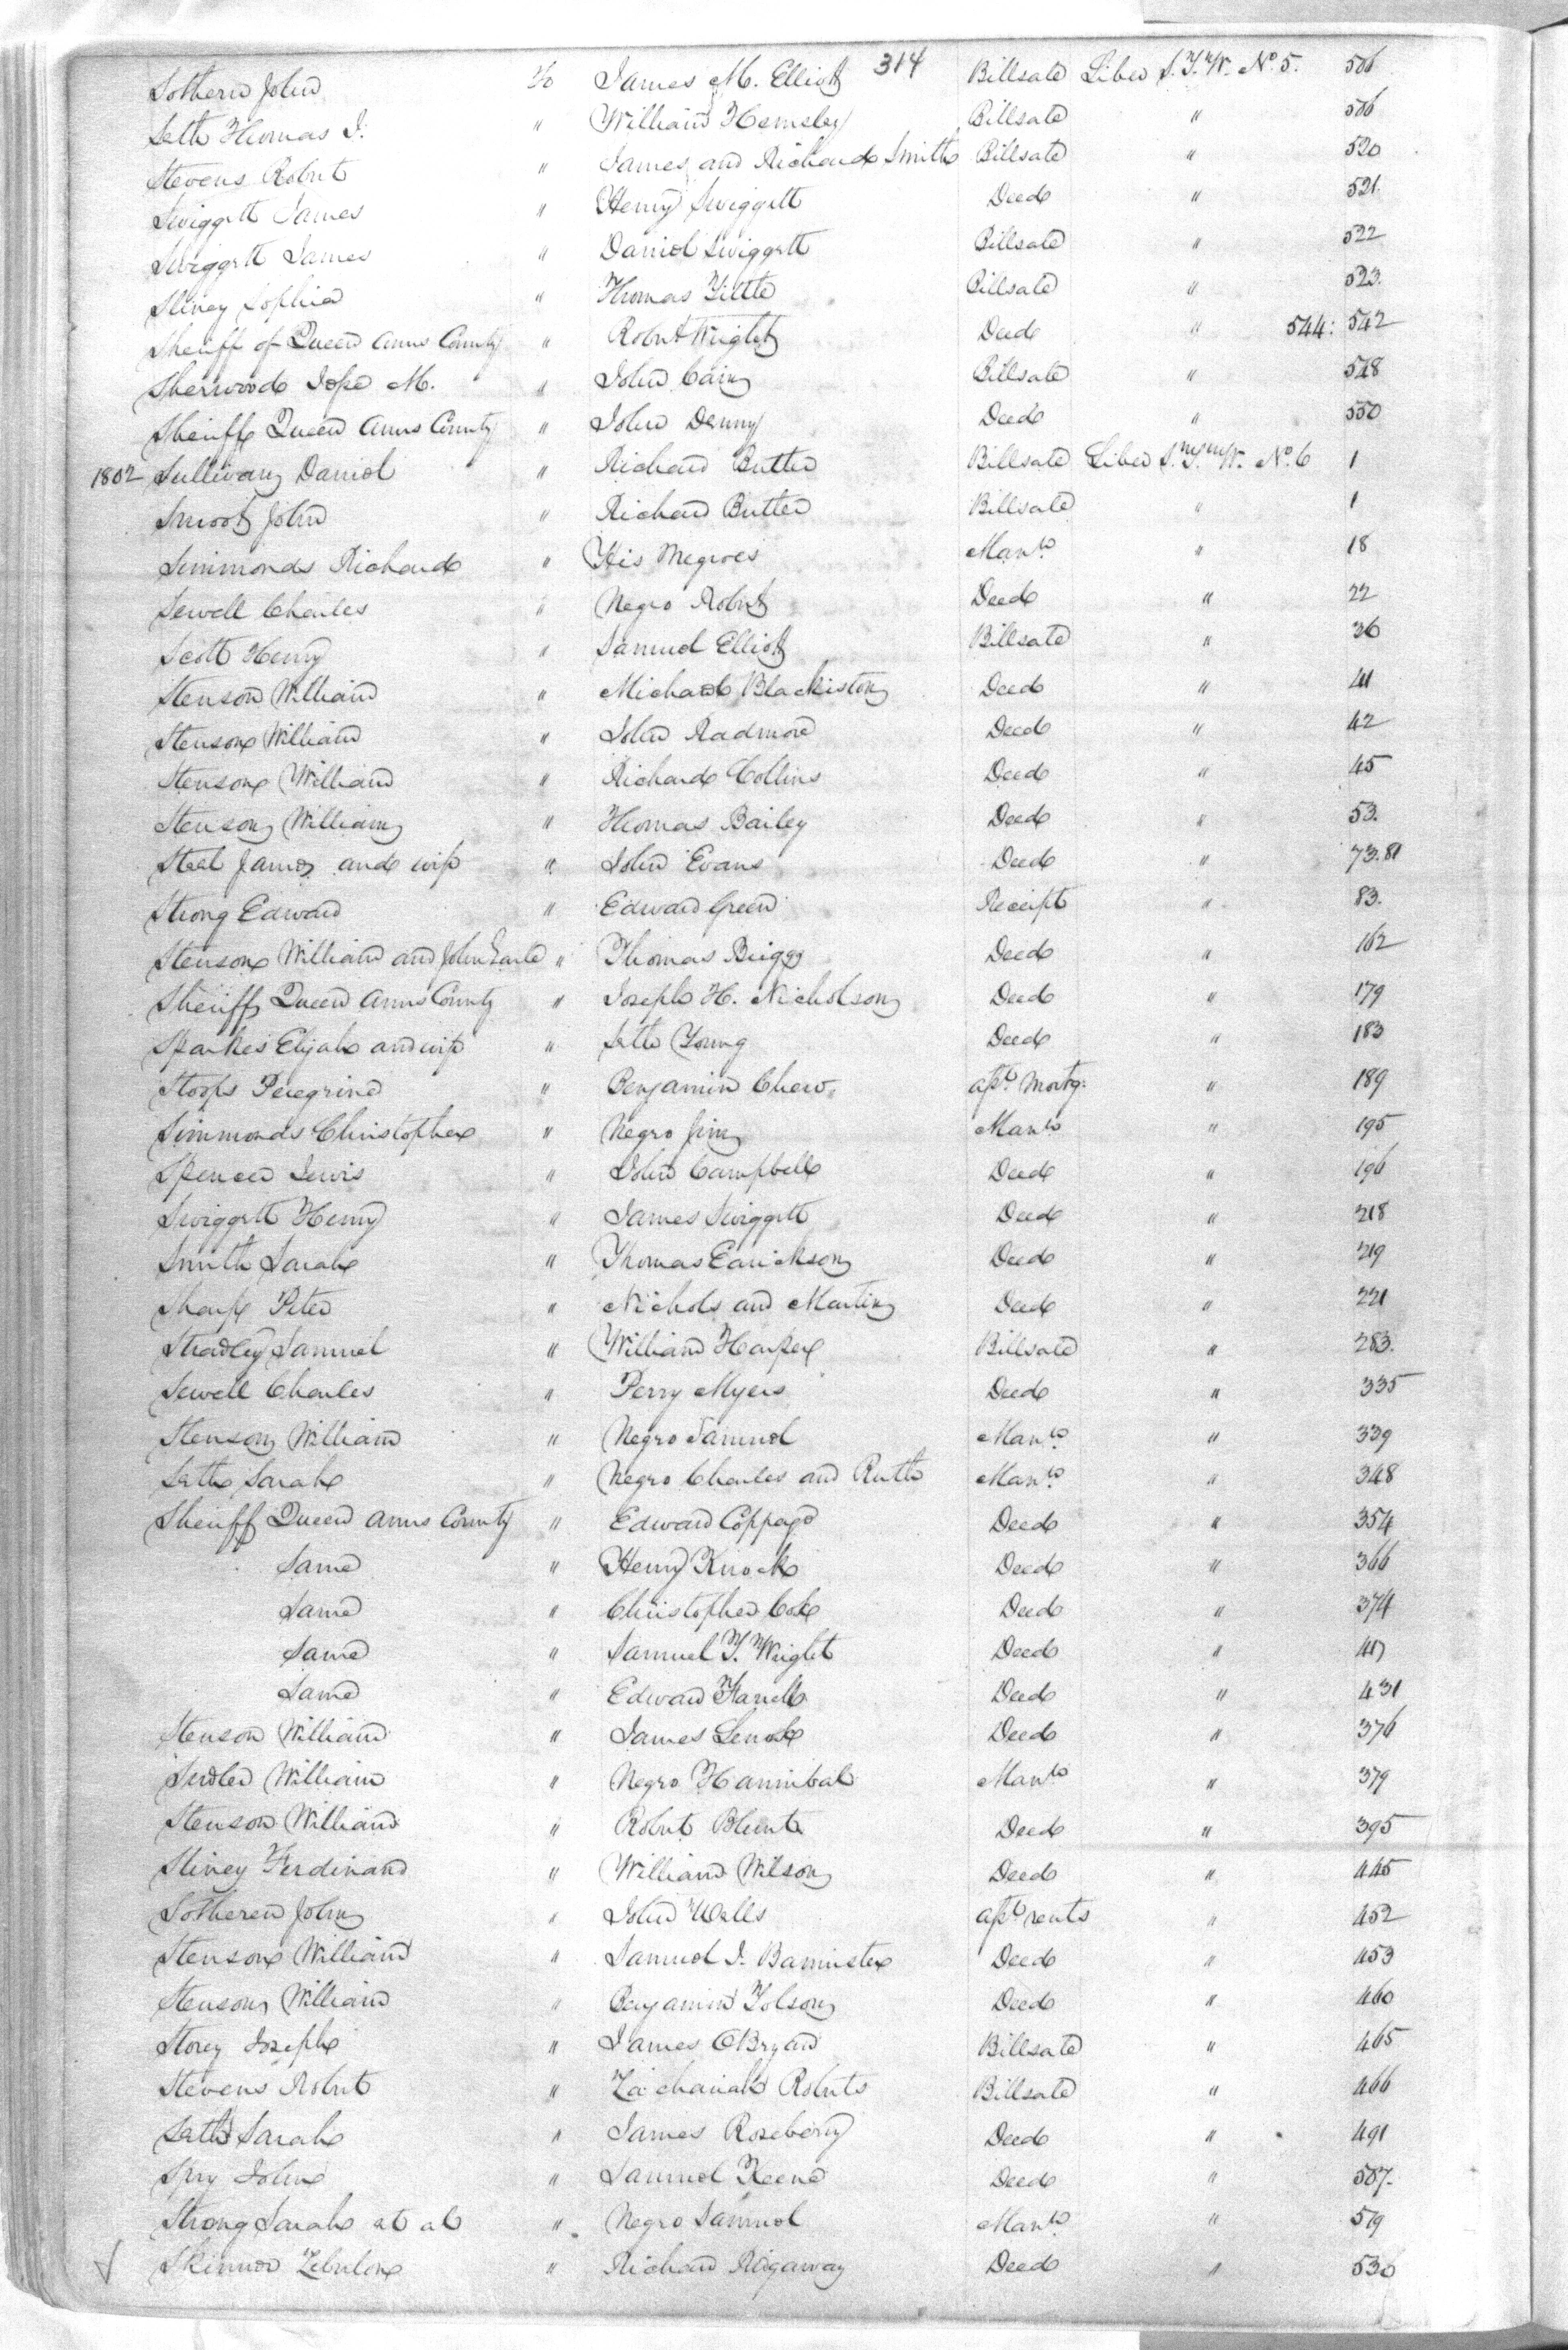 314
Sothern John to James M. Elliott Billsale Liber S.T.W. No. 5. 506
Seth Thomas J. " William Hemsley Billsale " 506
Stevens Robert " James and Richard Smith Billsale " 520
Swiggett James " Henry Swiggett Deed " 521
Swiggett James " Daniel Swiggett Billsale " 522
Sliney Sophia " Thomas Tittle Billsale " 523.
Sheriff of Queen Anns County " Robert Wright Deed " 544: 542
Sherwood Jope M. " John Cain Billsale " 548
Sheriff Queen Anns County " John Denny Deed " 550
1802 Sullivan Daniel " Richard Butler Billsale Liber S.T.W. No. 6 1
Smoot John " Richard Butler Billsale " 1
Simmonds Richard " His Negroes Man.to " 18
Sewell Charles " Negro Robert Deed " 22
Scott Henry " Samuel Elliott Billsale " 36
Stenson William " Michael Blackiston Deed " 41
Stenson William " John Radmore Deed " 42
Stenson William " Richard Collins Deed " 45
Stenson William " Thomas Bailey Deed " 53.
Steel James and wife " John Evans Deed " 73.81
Strong Edward " Edward Green Receipt " 83.
Stenson William and John Earle " Thomas Briggs Deed " 162
Sheriff Queen Anns County " Joseph H. Nicholson Deed " 179
Sparkes Elijah and wife " Seth Young Deed " 183
Stoops Peregrine " Benjamin Chew apt. Mortg: " 189
Simmonds Christopher " Negro Jim Man.to " 195
Spencer Lewis " John Campbell Deed " 196
Swiggett Henry " James Swiggett Deed " 218
Smith Sarah " Thomas Earickson Deed " 219
Sharp Peter " Nichols and Martin Deed " 221
Stradley Samuel " William Harper Billsale " 283.
Sewell Charles " Perry Myers Deed " 335
Stenson William " Negro Samuel Man.to " 339
Seth Sarah " Negro Charles and Ruth Man.to " 348
Sheriff Queen Anns County " Edward Coppage Deed " 354
Same " Henry Knock Deed " 366
Same " Christopher Cox Deed " 374
Same " Samuel T. Wright Deed " 417
Same " Edward Harrell Deed " 431
Stenson William " James Lenox Deed " 376
Sudler William " Negro Hannibal Man.to " 379
Stenson William " Robert Blunt Deed " 395
Sliney Ferdinand " William Wilson Deed " 445
Sotheren John " John Wells apt. rents " 452
Stenson William " Samuel J. Bannister Deed " 453
Stenson William " Benjamin Tolson Deed " 460
Storey Joseph " James OBryan Billsale " 465
Stevens Robert " Zachariah Roberts Billsale " 466
Seth Sarah " James Roseberry Deed " 491
Spry John " Samuel Keene Deed " 507.
Strong Sarah et al " Negro Samuel Man.to " 519
Skinner Zebulon " Richard Ridgaway Deed " 530